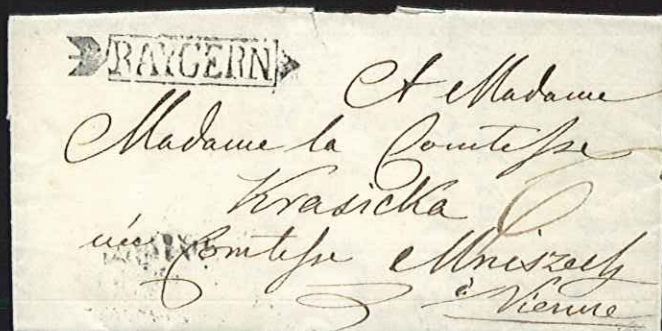 RAYGERN
A Madame
Madame la Comtesse
Krasicka
née Comtesse Mniszech
à Vienne